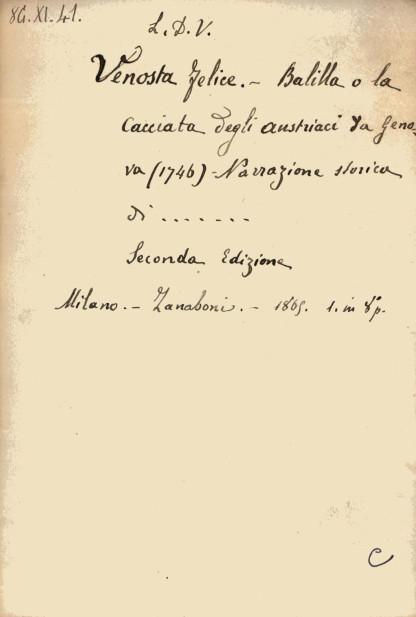 8G.XI.41.
L. D. V.
Venosta Felice. – Balilla o la
Cacciata degli austriaci da Geno-
va (1746) – Narrazione storica
di .......
Seconda Edizione
Milano. – Zanaboni. – 1865. 1. in 8° p.
C